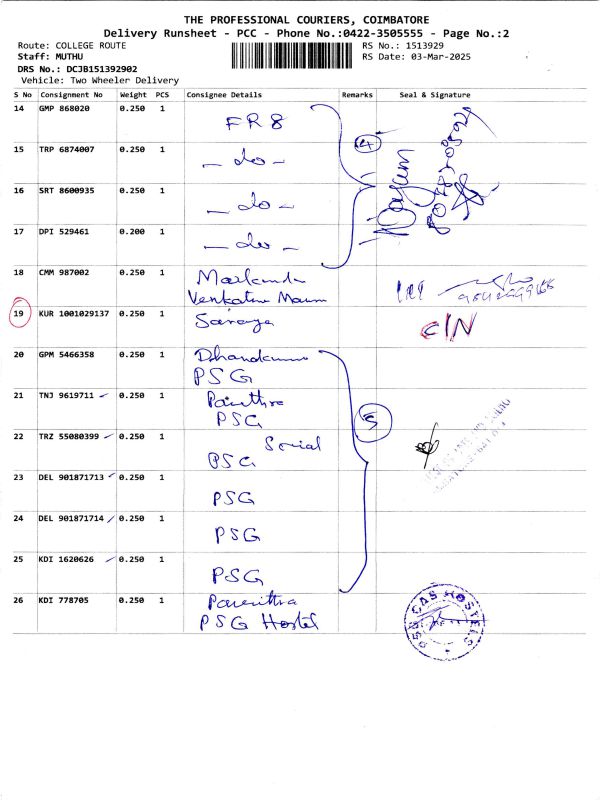 THE PROFESSIONAL COURIERS, COIMBATORE
Delivery Runsheet - PCC - Phone No.:0422-3505555 - Page No.:2
Route: COLLEGE ROUTE
RS No.: 1513929
Staff: MUTHU
RS Date: 03-Mar-2025
DRS No.: DCJB151392902
Vehicle: Two Wheeler Delivery
S No Consignment No Weight PCS Consignee Details Remarks Seal & Signature
14 GMP 868020 0.250 1 FR8
15 TRP 6874007 0.250 1 - do -
4
16 SRT 8600935 0.250 1 - do -
17 DPI 529461 0.200 1 - do -
18 CMM 987002 0.250 1
19 KUR 1001029137 0.250 1 C/N
20 GPM 5466358 0.250 1
PSG
21 TNJ 9619711 0.250 1
PSG
5
22 TRZ 55080399 0.250 1 Social
PSG
23 DEL 901871713 0.250 1 PSG
24 DEL 901871714 0.250 1 PSG
25 KDI 1620626 0.250 1 PSG
26 KDI 778705 0.250 1 Pavithra
PSG Hostel
PSG CAS HOSTELS